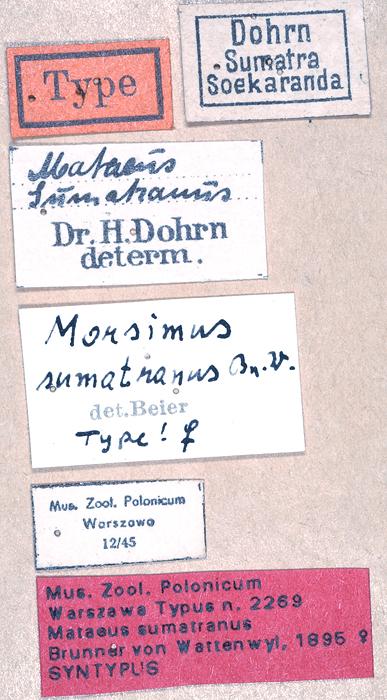 Type
Dohrn
Sumatra
Soekaranda
Mataeus
Sumatranus
Dr. H. Dohrn
determ.
Morsimus
sumatranus Bn.W.
det. Beier
Type! ♀
Mus. Zool. Polonicum
Warszawa
12/45
Mus. Zool. Polonicum
Warszawa Typus n. 2269
Mataeus sumatranus
Brunner von Wattenwyl, 1895 ♀
SYNTYPUS